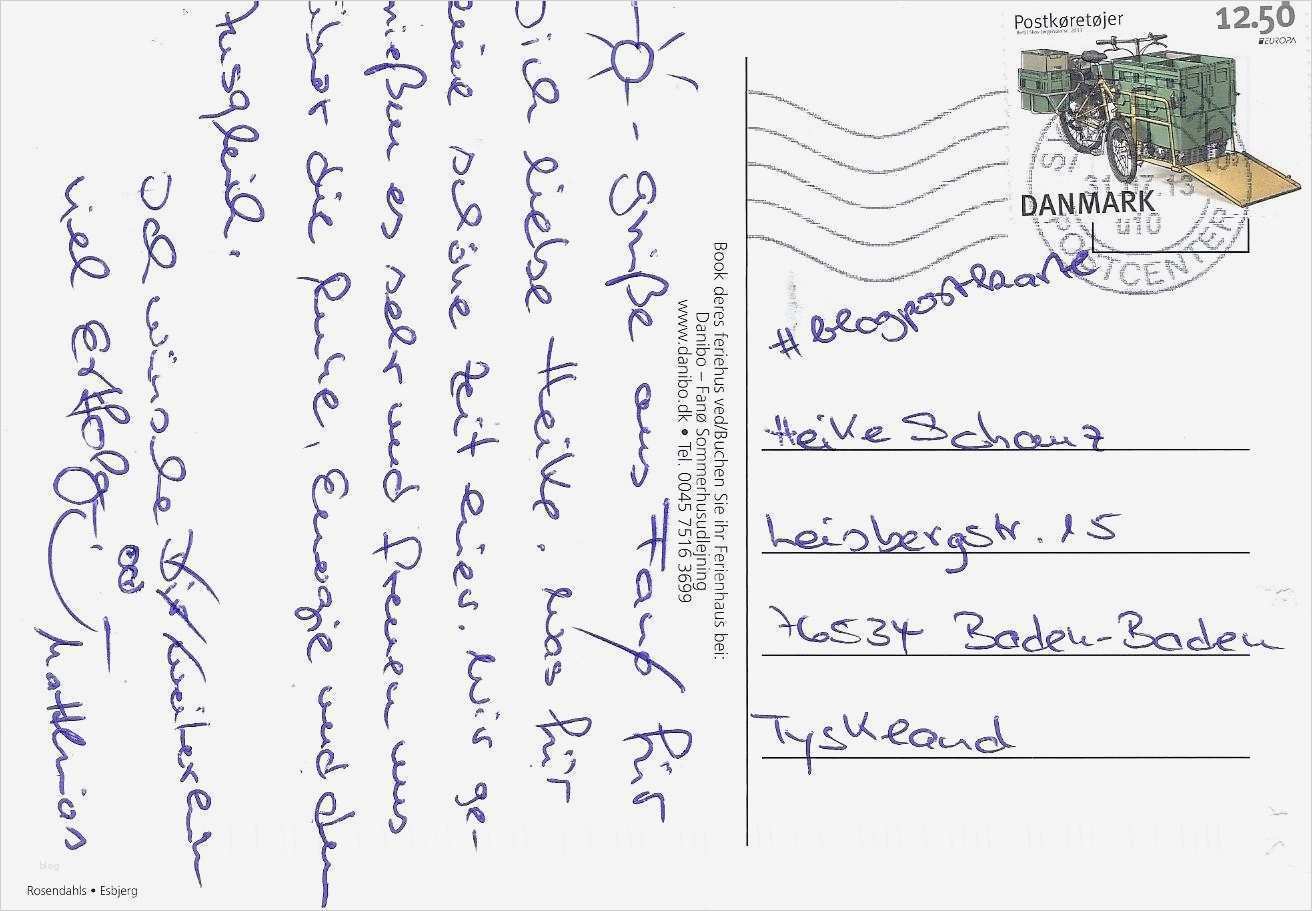 Grüße aus Fanø für
Dich liebe Heike. Was für
eine schöne Zeit hier. Wir ge-
nießen es sehr und freuen uns
über die Ruhe, Energie und den
Ausgleich.
Ich wünsche Dir
viel Erfolg.
Matthias
Book deres feriehus ved/Buchen Sie ihr Ferienhaus bei:
Danibo – Fanø Sommerhusudlejning
www.danibo.dk • Tel. 0045 7516 3699
Postkøretøjer
12.50
EUROPA
DANMARK
31.07.13
u10
POSTCENTER
#blogpostkarte
Heike Schanz
Leisbergstr. 15
76534 Baden-Baden
Tyskland
blog
Rosendahls • Esbjerg